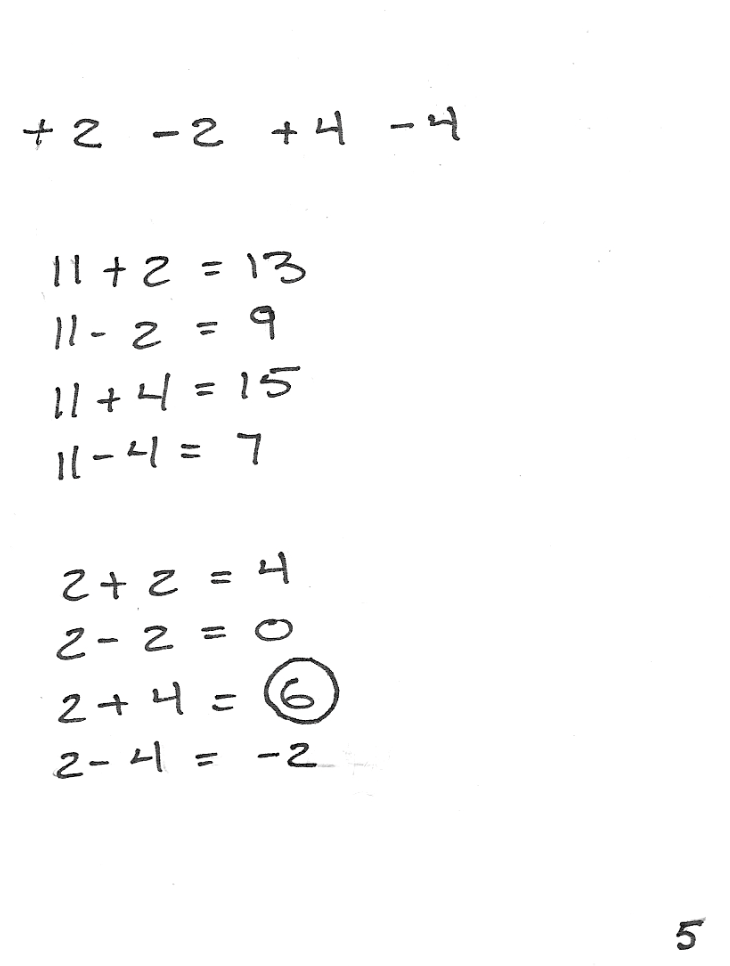 +2 -2 +4 -4
11 + 2 = 13
11 - 2 = 9
11 + 4 = 15
11 - 4 = 7
2 + 2 = 4
2 - 2 = 0
2 + 4 = 6
2 - 4 = -2
5